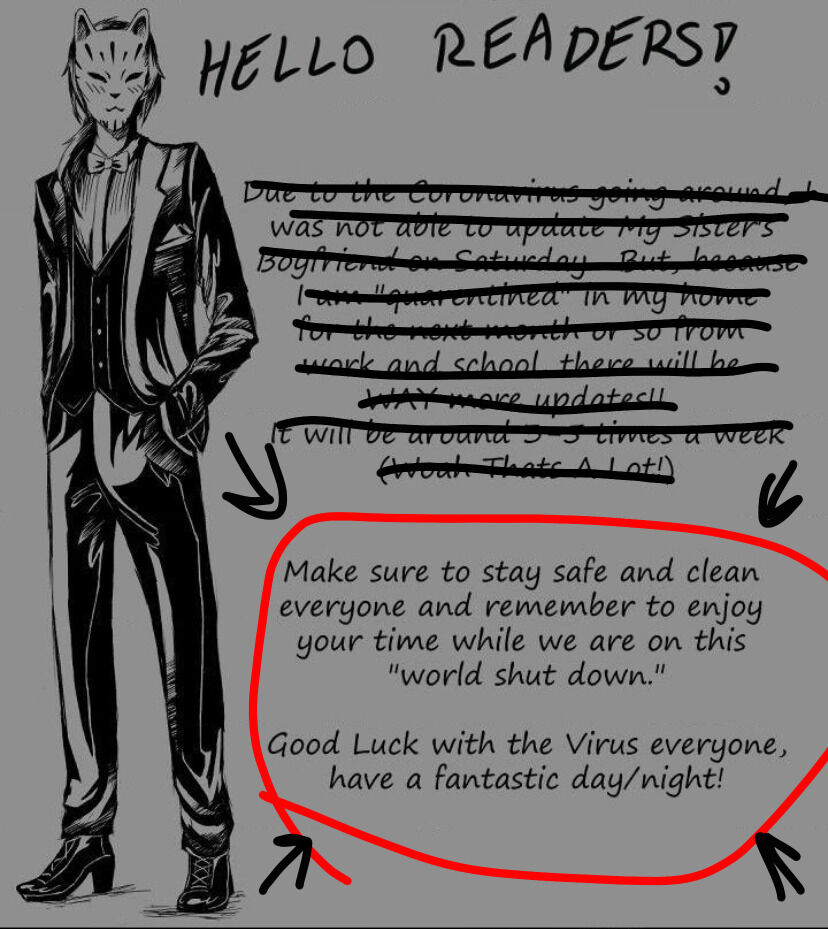 HELLO READERS!
Due to the Coronavirus going around, I
was not able to update My Sister's
Boyfriend on Saturday. But, because
I am "quarentined" in my home
for the next month or so from
work and school, there will be
WAY more updates!!
It will be around 3-5 times a week
(Woah Thats A Lot!)
Make sure to stay safe and clean
everyone and remember to enjoy
your time while we are on this
"world shut down."
Good Luck with the Virus everyone,
have a fantastic day/night!